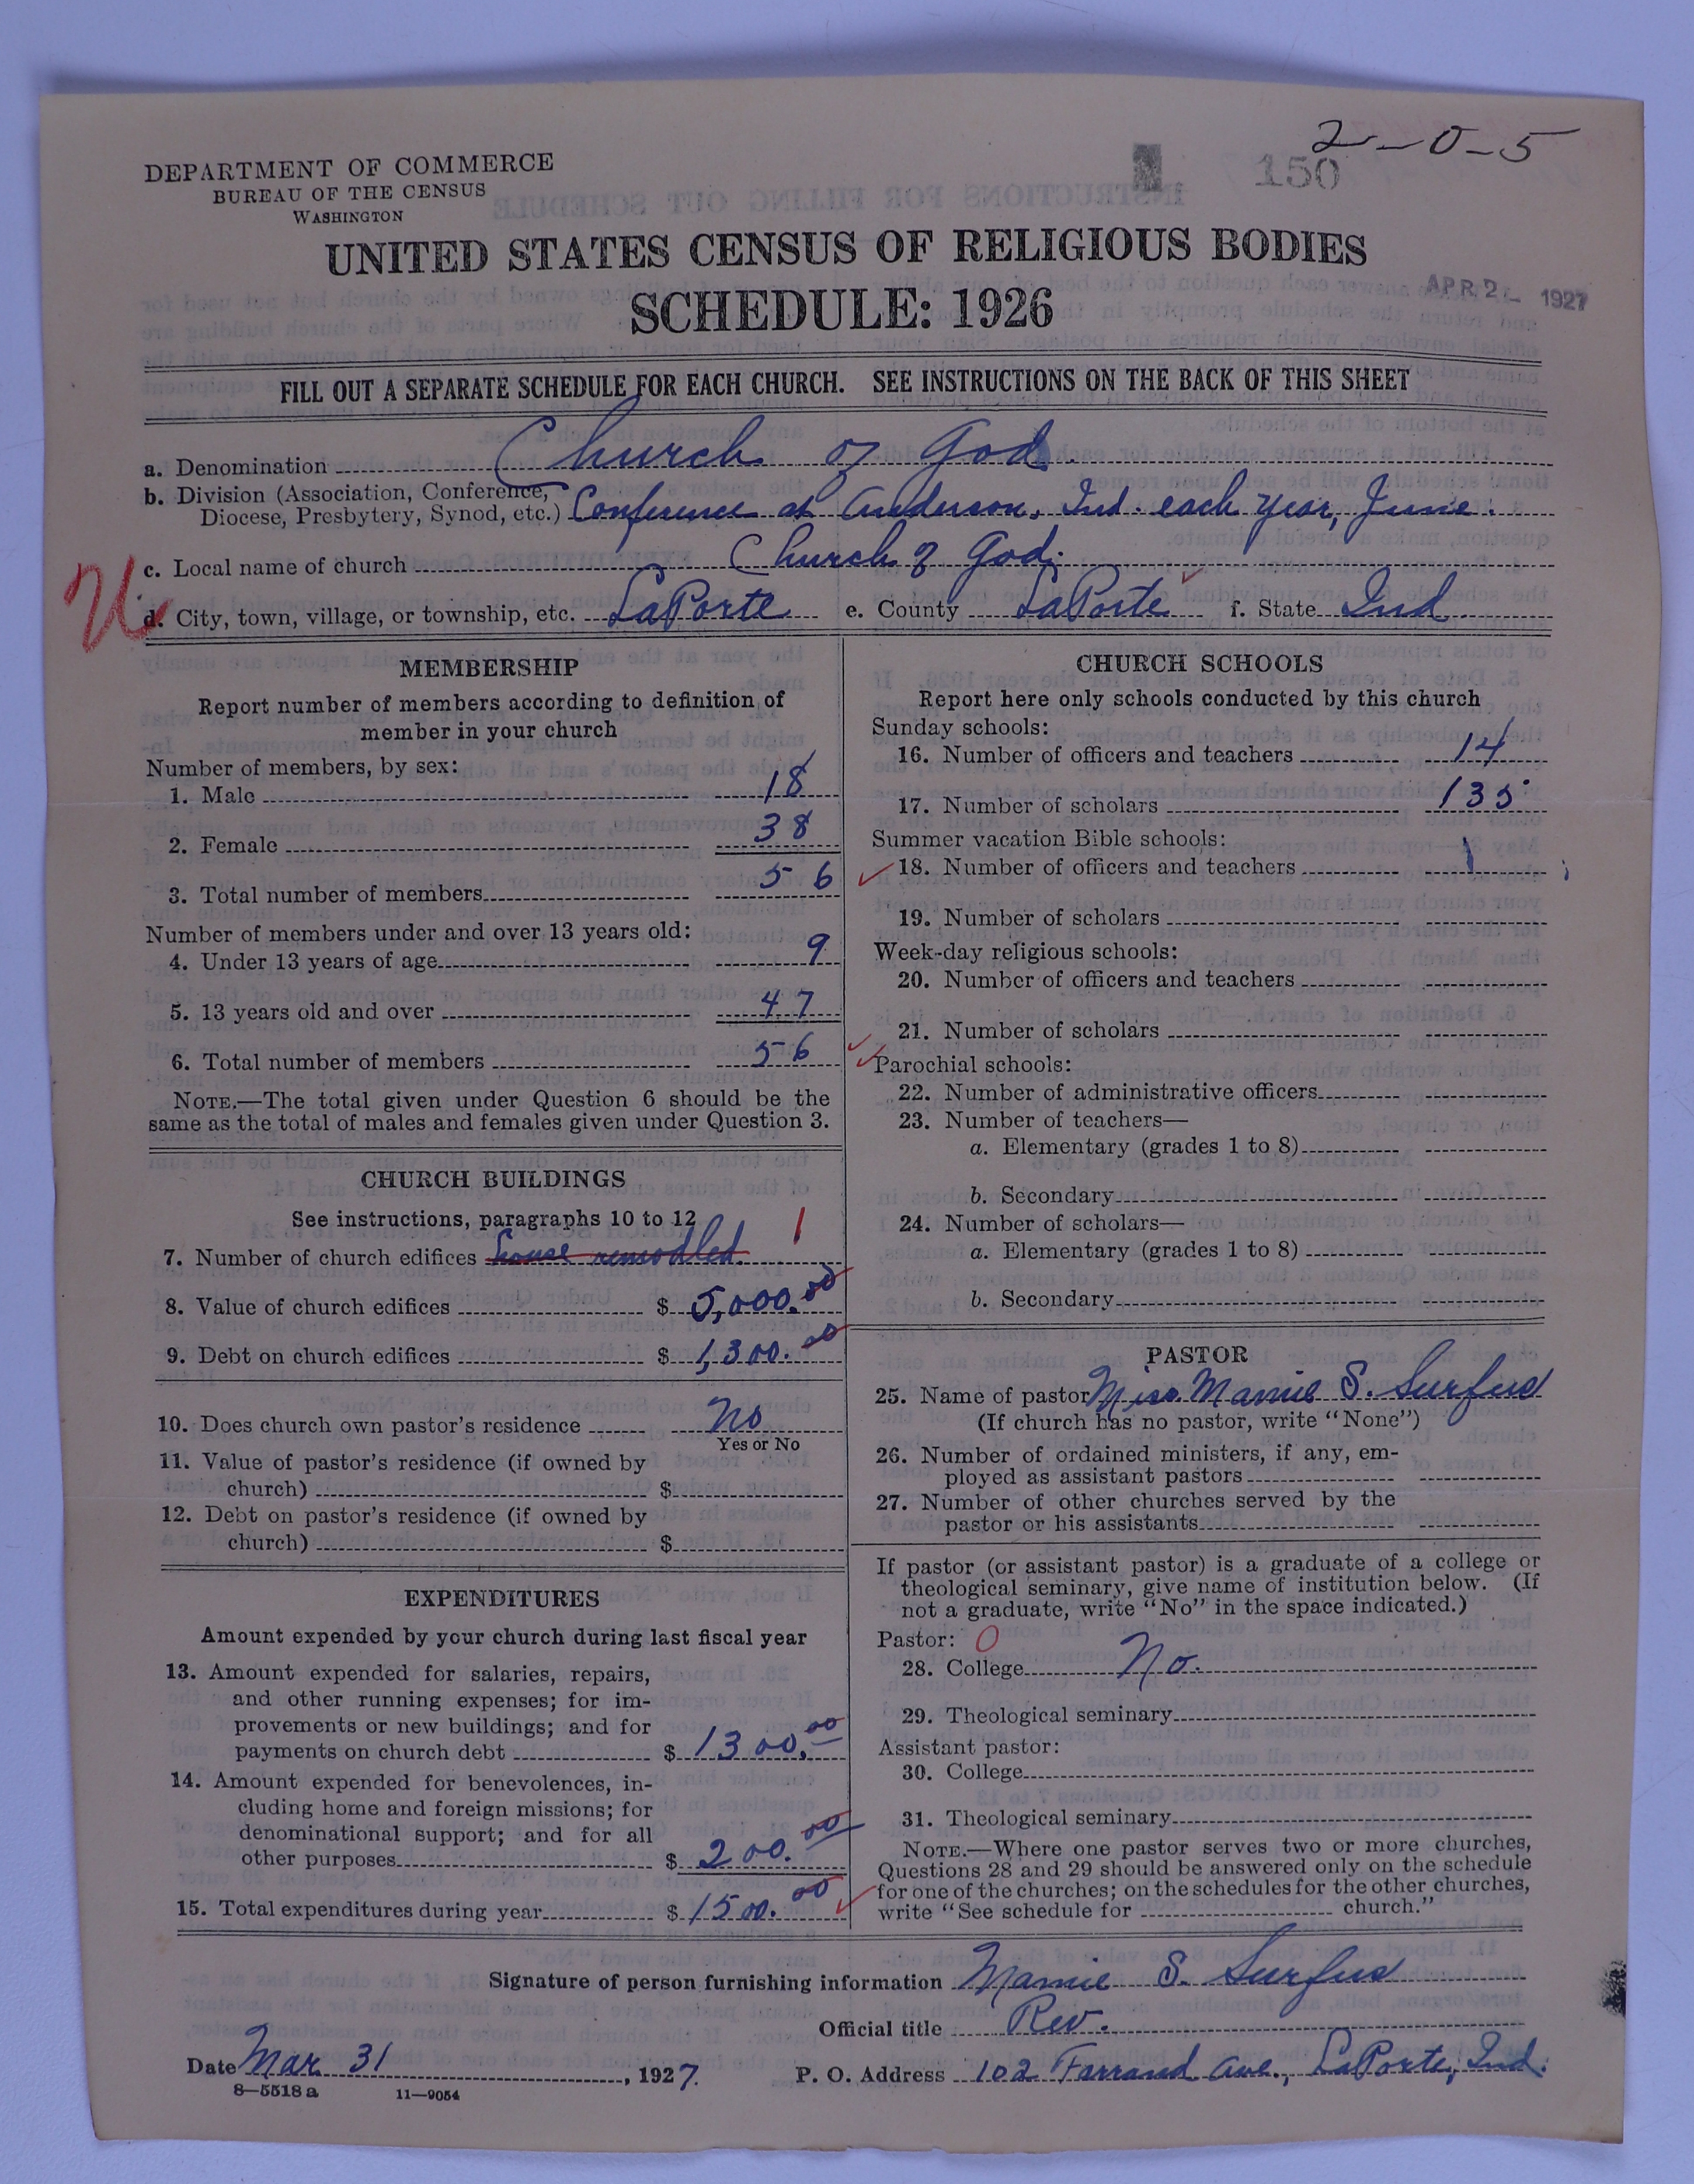 2-0-5
150
DEPARTMENT OF COMMERCE
BUREAU OF THE CENSUS
WASHINGTON
UNITED STATES CENSUS OF RELIGIOUS BODIES
SCHEDULE: 1926
APR 2- 1927
FILL OUT A SEPARATE SCHEDULE FOR EACH CHURCH. SEE INSTRUCTIONS ON THE BACK OF THIS SHEET
a. Denomination Church of God
b. Division (Association, Conference,
Diocese, Presbytery, Synod, etc.) Conference at Anderson, Ind. each year, June.
c. Local name of church Church of God.
d. City, town, village, or township, etc. LaPorte e. County LaPorte f. State Ind.
MEMBERSHIP
Report number of members according to definition of
member in your church
Number of members, by sex:
1. Male 18
2. Female 38
3. Total number of members 56
Number of members under and over 13 years old:
4. Under 13 years of age 9
5. 13 years old and over 47
6. Total number of members 56
NOTE.—The total given under Question 6 should be the
same as the total of males and females given under Question 3.
CHURCH BUILDINGS
See instructions, paragraphs 10 to 12
7. Number of church edifices house remodled. 1
8. Value of church edifices $ 5,000.00
9. Debt on church edifices $ 1,300.00
10. Does church own pastor's residence No
Yes or No
11. Value of pastor's residence (if owned by
church) $
12. Debt on pastor's residence (if owned by
church) $
EXPENDITURES
Amount expended by your church during last fiscal year
13. Amount expended for salaries, repairs,
and other running expenses; for im-
provements or new buildings; and for
payments on church debt $ 1300.00
14. Amount expended for benevolences, in-
cluding home and foreign missions; for
denominational support; and for all
other purposes $ 200.00
15. Total expenditures during year $ 1500.00
CHURCH SCHOOLS
Report here only schools conducted by this church
Sunday schools:
16. Number of officers and teachers 14
17. Number of scholars 135
Summer vacation Bible schools:
18. Number of officers and teachers 1
19. Number of scholars
Week-day religious schools:
20. Number of officers and teachers
21. Number of scholars
Parochial schools:
22. Number of administrative officers
23. Number of teachers—
a. Elementary (grades 1 to 8)
b. Secondary
24. Number of scholars—
a. Elementary (grades 1 to 8)
b. Secondary
PASTOR
25. Name of pastor Miss Mamie S. Surfus
(If church has no pastor, write "None")
26. Number of ordained ministers, if any, em-
ployed as assistant pastors
27. Number of other churches served by the
pastor or his assistants
If pastor (or assistant pastor) is a graduate of a college or
theological seminary, give name of institution below. (If
not a graduate, write "No" in the space indicated.)
Pastor: 0
28. College No.
29. Theological seminary
Assistant pastor:
30. College
31. Theological seminary
NOTE.—Where one pastor serves two or more churches,
Questions 28 and 29 should be answered only on the schedule
for one of the churches; on the schedules for the other churches,
write "See schedule for church."
Signature of person furnishing information Mamie S. Surfus
Official title Rev.
Date Mar 31, 1927. P. O. Address 102 Farrand Ave., LaPorte, Ind.
8—5518a 11—9054